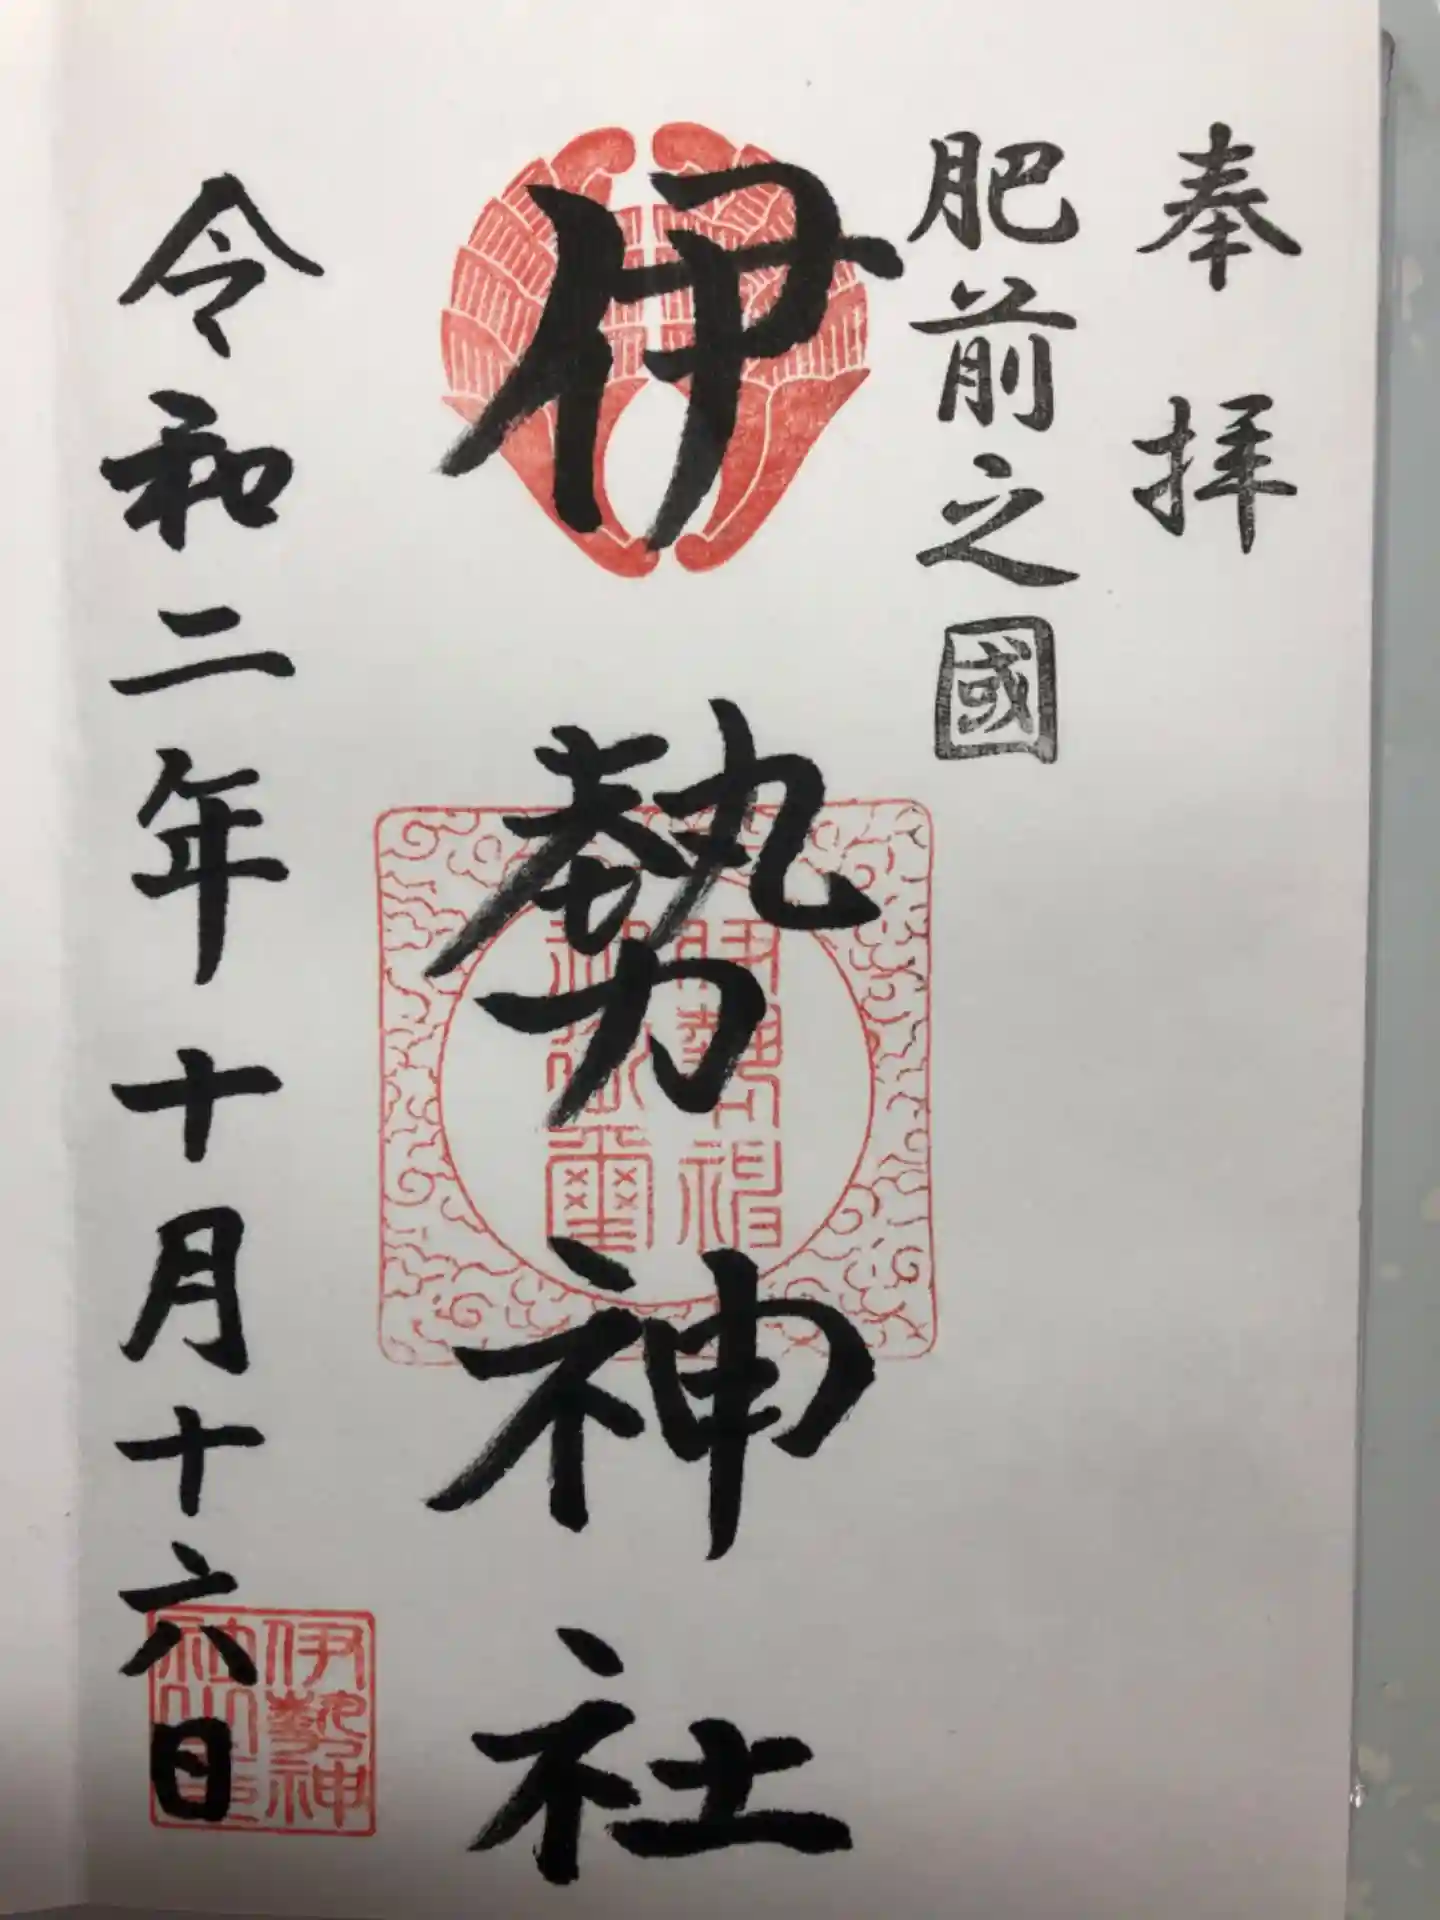 奉拝
肥前之國
伊勢神社
令和二年十月十六日
伊勢神